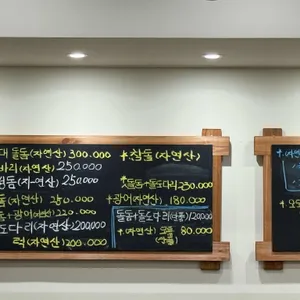 대 돌돔(자연산) 300.000
바리(자연산) 250.000
돔(자연산) 250.000
돔(자연산) 250.000
돔+광어(자연산) 220.000
도다리(자연산) 200.000
럭(자연산) 200.000
*참돔(자연산)
돔+돌도다리 230.000
*광어(자연산) 180.000
돌돔+돌도다리 120.000
*(자연산) 모듬 80.000